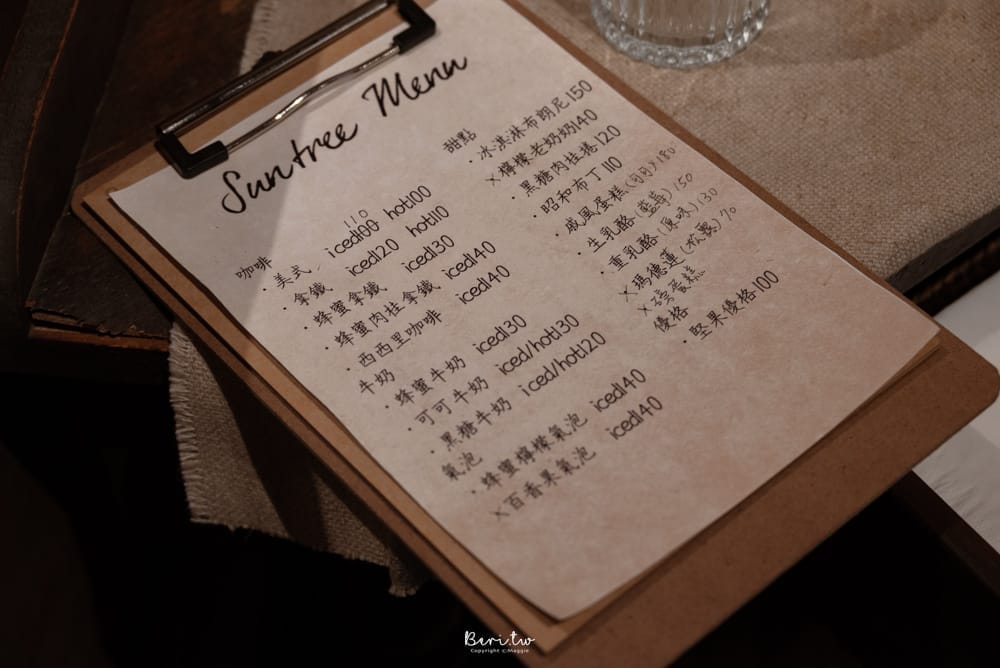 Suntree Menu
咖啡
110
・美式 iced100 hot100
拿鐵 iced120 hot110
・蜂蜜拿鐵 iced130
・蜂蜜肉桂拿鐵 iced140
・西西里咖啡 iced140
牛奶
・蜂蜜牛奶 iced130
・可可牛奶 iced/hot130
・黑糖牛奶 iced/hot120
氣泡
・蜂蜜檸檬氣泡 iced140
×百香果氣泡 iced140
甜點
・冰淇淋布朗尼150
×檸檬老奶奶140
・黑糖肉桂捲120
・昭和布丁110
・戚風蛋糕 180
・生乳酪(藍莓)150
・重乳酪(原味)130
×瑪德蓮 70
×磅蛋糕
優格
・堅果優格100
Beri.tw
Copyright ©Maggie